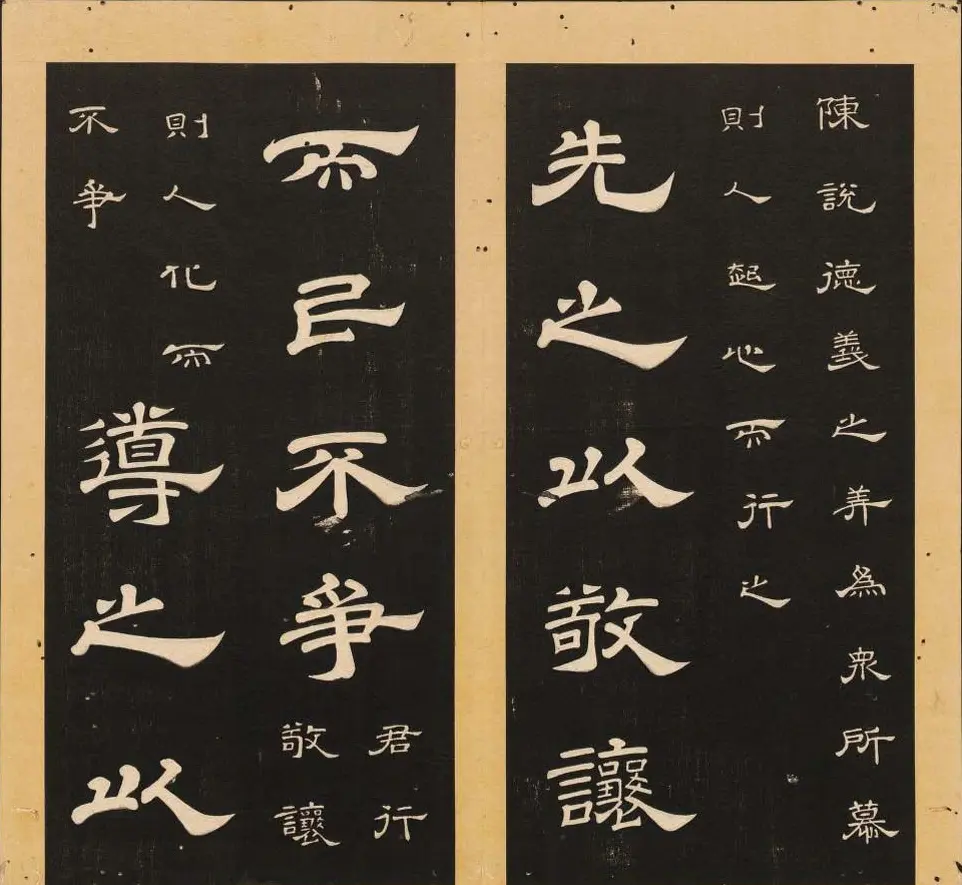 陳說德義之美爲衆所慕
則人起心而行之
先之以敬讓
而民不爭
君行
敬讓
則人化而
不爭
導之以